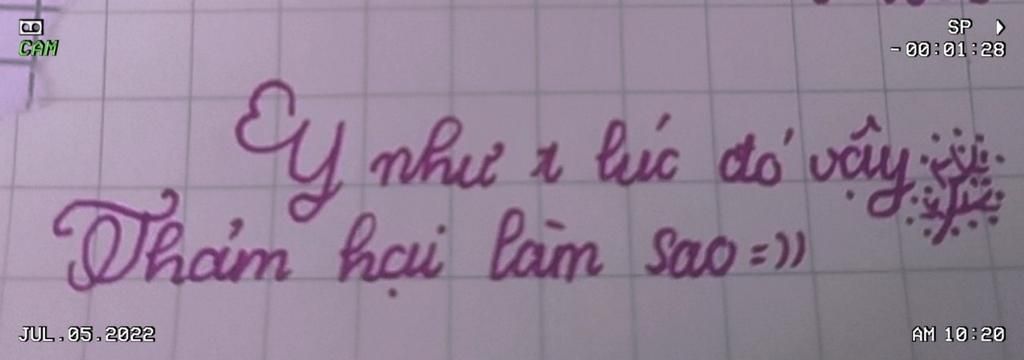 SP
CAM
-00:01:28
Ey như t lúc đó vậy
Thảm hại làm sao =))
JUL.05.2022
AM 10:20